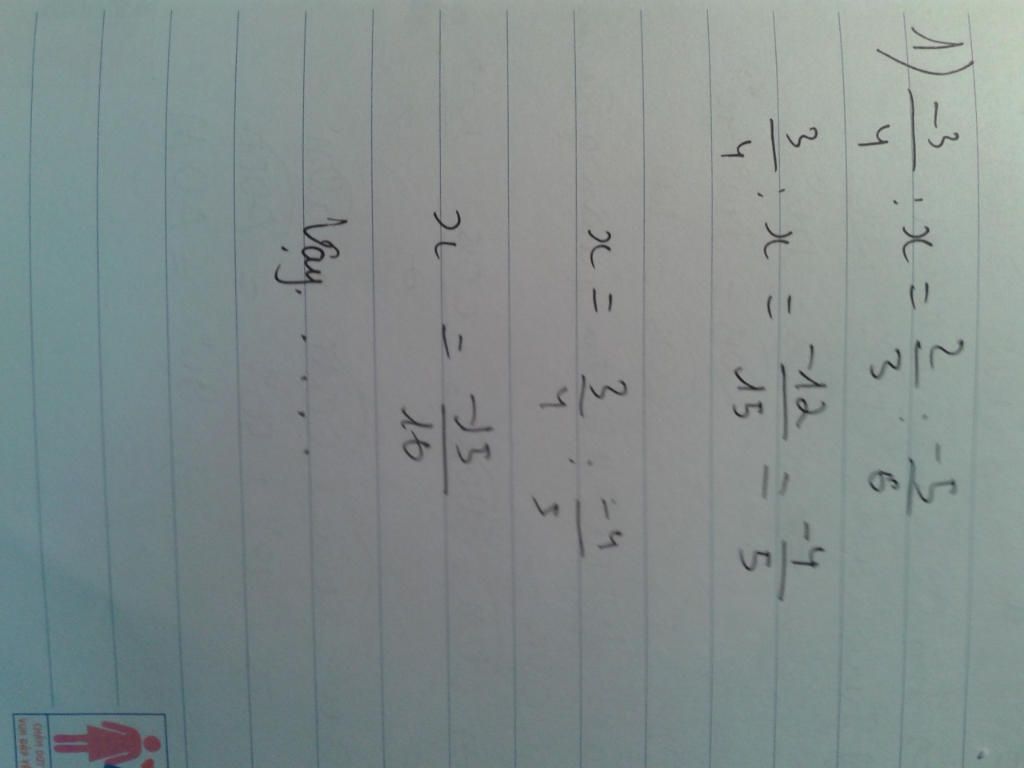 1) -3/4 : x = 2/3 : -5/6
3/4 : x = -12/15 = -4/5
x = 3/4 : -4/5
x = -15/16
Vậy . . . .